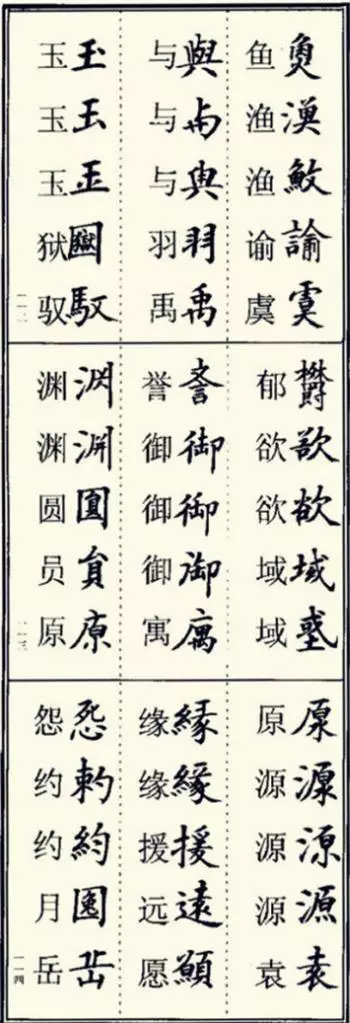 鱼魚
渔漁
渔
谕諭
虞虞
与與
与与
与與
羽羽
禹禹
玉玉
玉玉
玉玉
狱
驭馭
一一二
郁欝
欲欲
欲欲
域域
域
誉誉
御御
御御
御御
寓庽
渊渕
渊渊
圆圓
员員
原原
一一三
原原
源源
源源
源源
袁袁
缘縁
缘緣
援援
远遠
愿願
怨怨
约
约約
月
岳岳
一一四